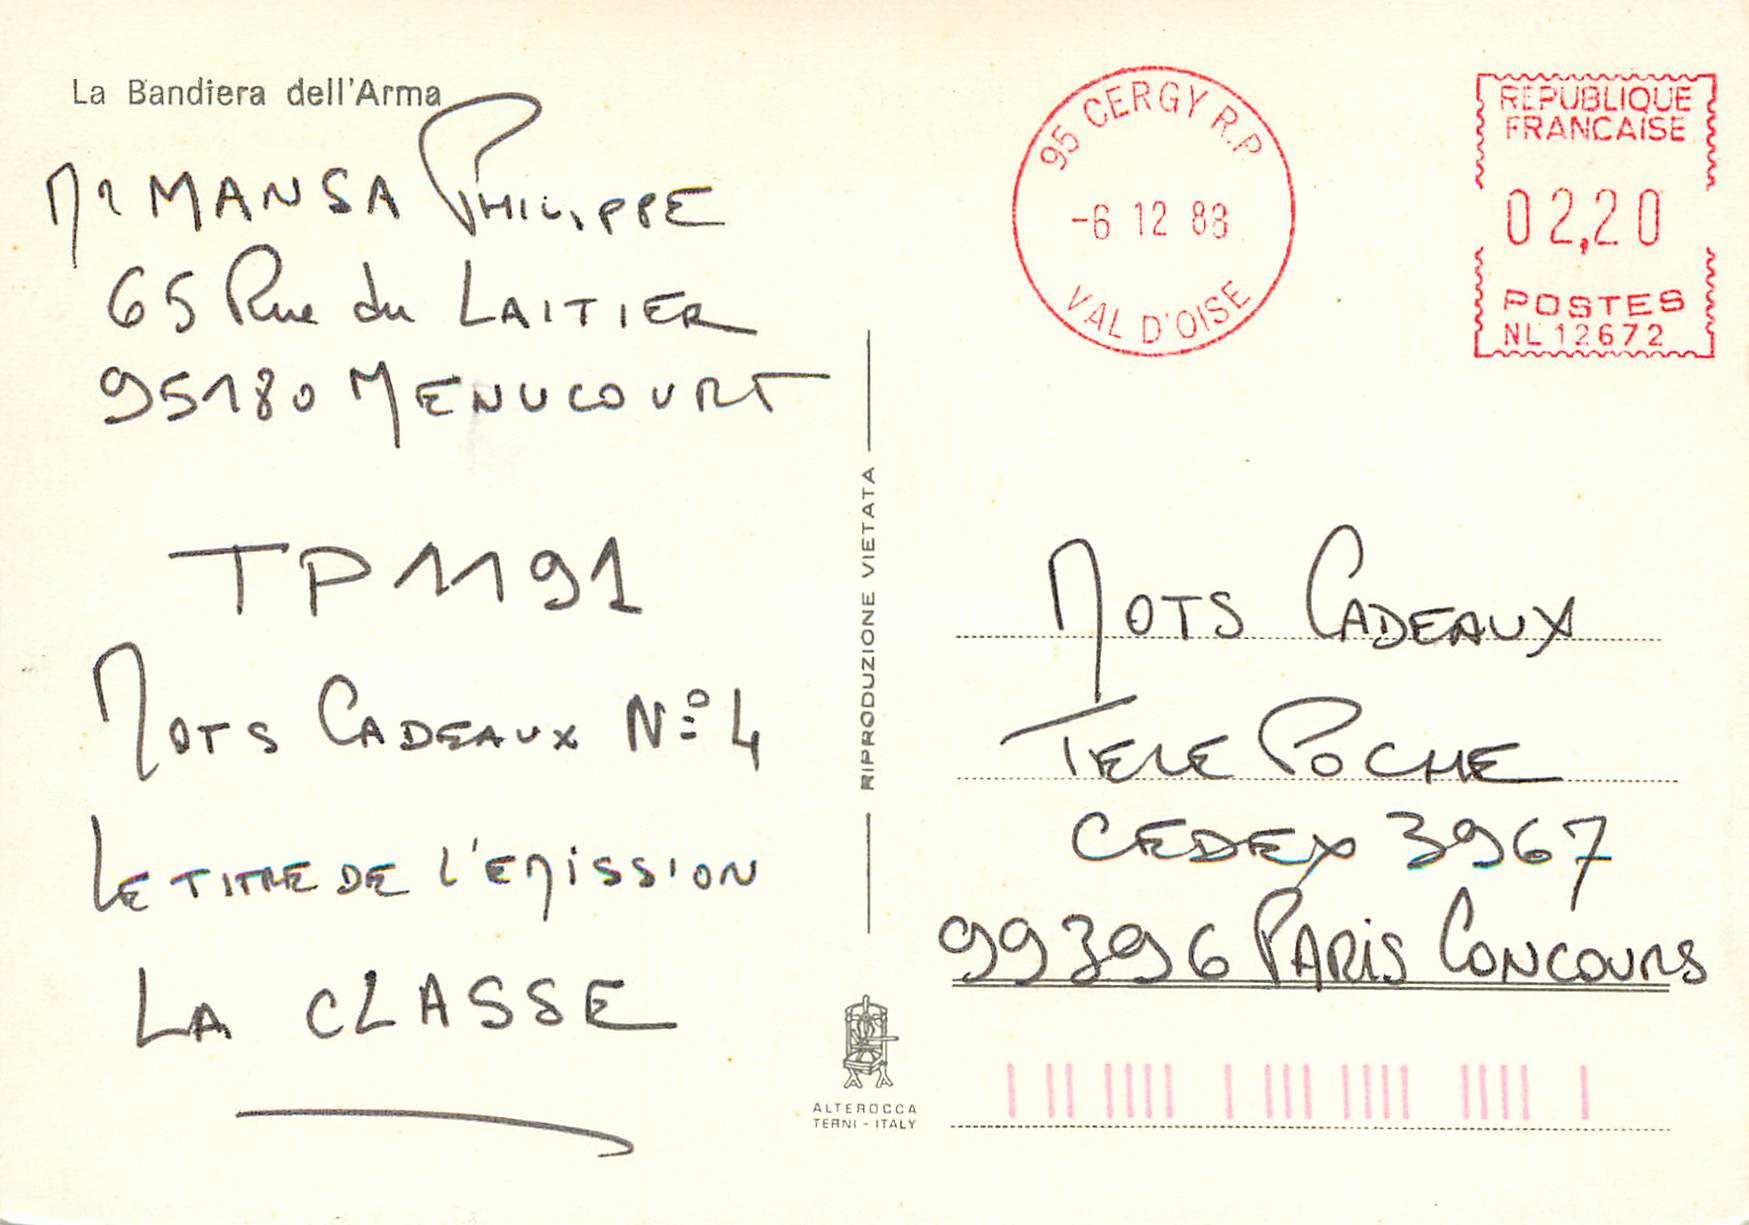 La Bandiera dell'Arma
Mr MANSA PHILIPPE
65 Rue du LAITIER
95180 MENUCOURT
TP1191
MOTS CADEAUX N° 4
LE TITRE DE L'EMISSION
LA CLASSE
RIPRODUZIONE VIETATA
ALTEROCCA
TERNI - ITALY
95 CERGY R.P
-6 12 88
VAL D'OISE
REPUBLIQUE
FRANCAISE
02,20
POSTES
NL 12672
MOTS CADEAUX
TELE POCHE
CEDEX 3967
99396 PARIS CONCOURS